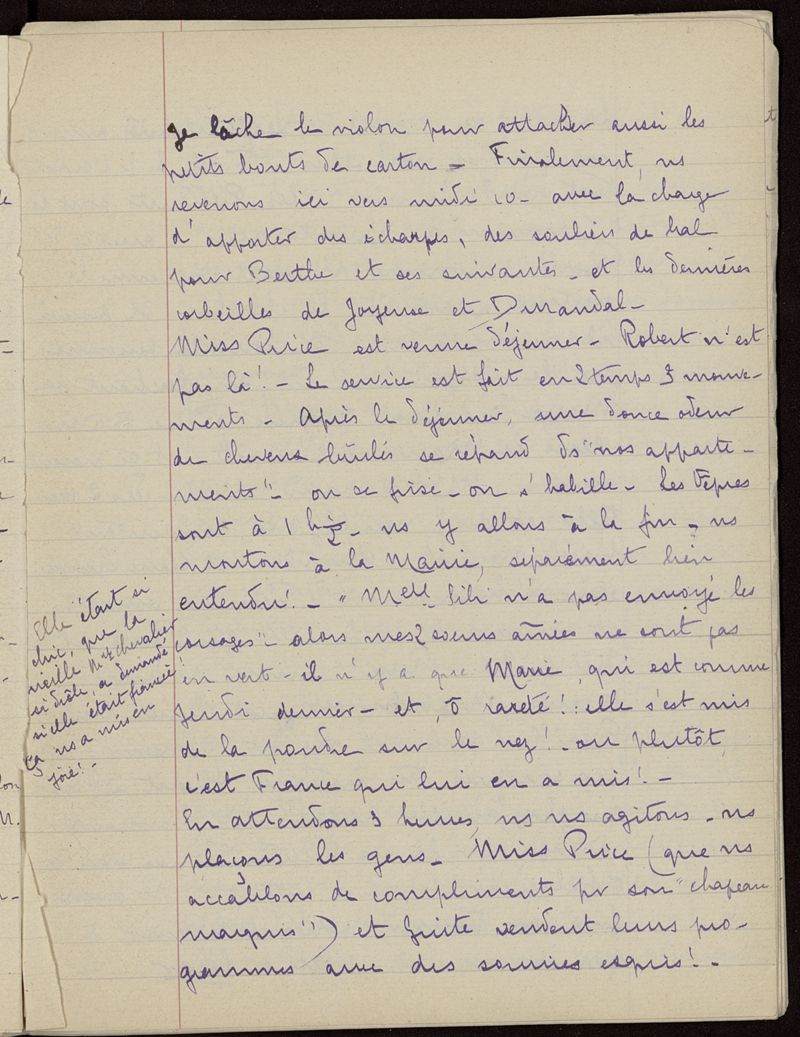 Je lâche le violon pour attacher aussi les
petits bouts de carton - Finalement, ns
revenons ici vers midi 10 - avec la charge
d'apporter des écharpes, des souliers de bal
pour Berthe et ses suivantes - et les dernières
corbeilles de Joyeuse et Durandal -
Miss Price est venue déjeuner - Robert n'est
pas là! - Le service est fait en 2 temps 3 mouve-
ments - Après le déjeuner, une douce odeur
de cheveux brûlés se répand ds "nos apparte-
ments" - on se frise - on s'habille - Les Vêpres
sont à 1 h ½ - ns y allons à la fin - ns
montons à la Mairie, séparément bien
entendu! - "Melle Lili n'a pas envoyé les
corsages" - alors mes 2 soeurs aînées ne sont pas
en vert - il n'y a que Marie, qui est comme
Jeudi dernier - et, ô rareté!: elle s'est mis
de la poudre sur le nez! - ou plutôt,
c'est France qui lui en a mis! -
En attendons 3 heures, ns ns agitons - ns
plaçons les gens - Miss Price (que ns
accablons de compliments pr son "chapeau
marquis") et Guite vendent leurs pro-
grammes avec des sourires exquis! -
Elle était si
chic, que la
vieille Mme Chevalier
si drôle, a demandé
si elle était fiancée!
ça ns a mis en
joie! -